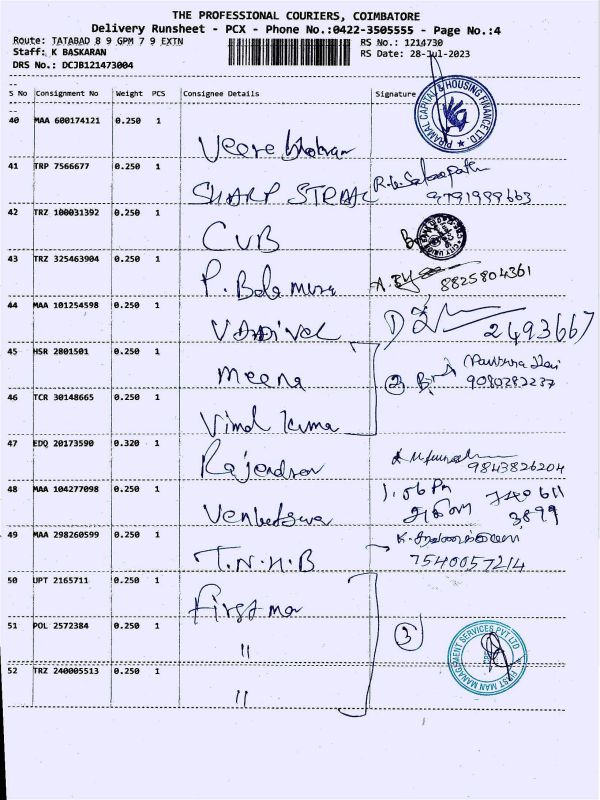 THE PROFESSIONAL COURIERS, COIMBATORE
Delivery Runsheet - PCX - Phone No.:0422-3505555 - Page No.:4
Route: TATABAD 8 9 GPM 7 9 EXTN
RS No.: 1214730
Staff: K BASKARAN
RS Date: 28-Jul-2023
DRS No.: DCJB121473004
S No Consignment No Weight PCS Consignee Details Signature
PIRAMAL CAPITAL & HOUSING FINANCE LTD.
40 MAA 600174121 0.250 1
41 TRP 7566677 0.250 1
SHARP
9791999663
42 TRZ 100031392 0.250 1
CUB
43 TRZ 325463904 0.250 1
P. Bala
8825804361
44 MAA 101254598 0.250 1
2493667
45 HSR 2801501 0.250 1
Meena
9080282237
46 TCR 30148665 0.250 1
Vimal Kuma
47 EDQ 20173590 0.320 1
Rajendran
9843826204
48 MAA 104277098 0.250 1
1.06 Pm
3899
49 MAA 298260599 0.250 1
T.N.H.B
7540057214
50 UPT 2165711 0.250 1
First ma
51 POL 2572384 0.250 1
"
3
52 TRZ 240005513 0.250 1
"
FIRST MAN MANAGEMENT SERVICES PVT LTD